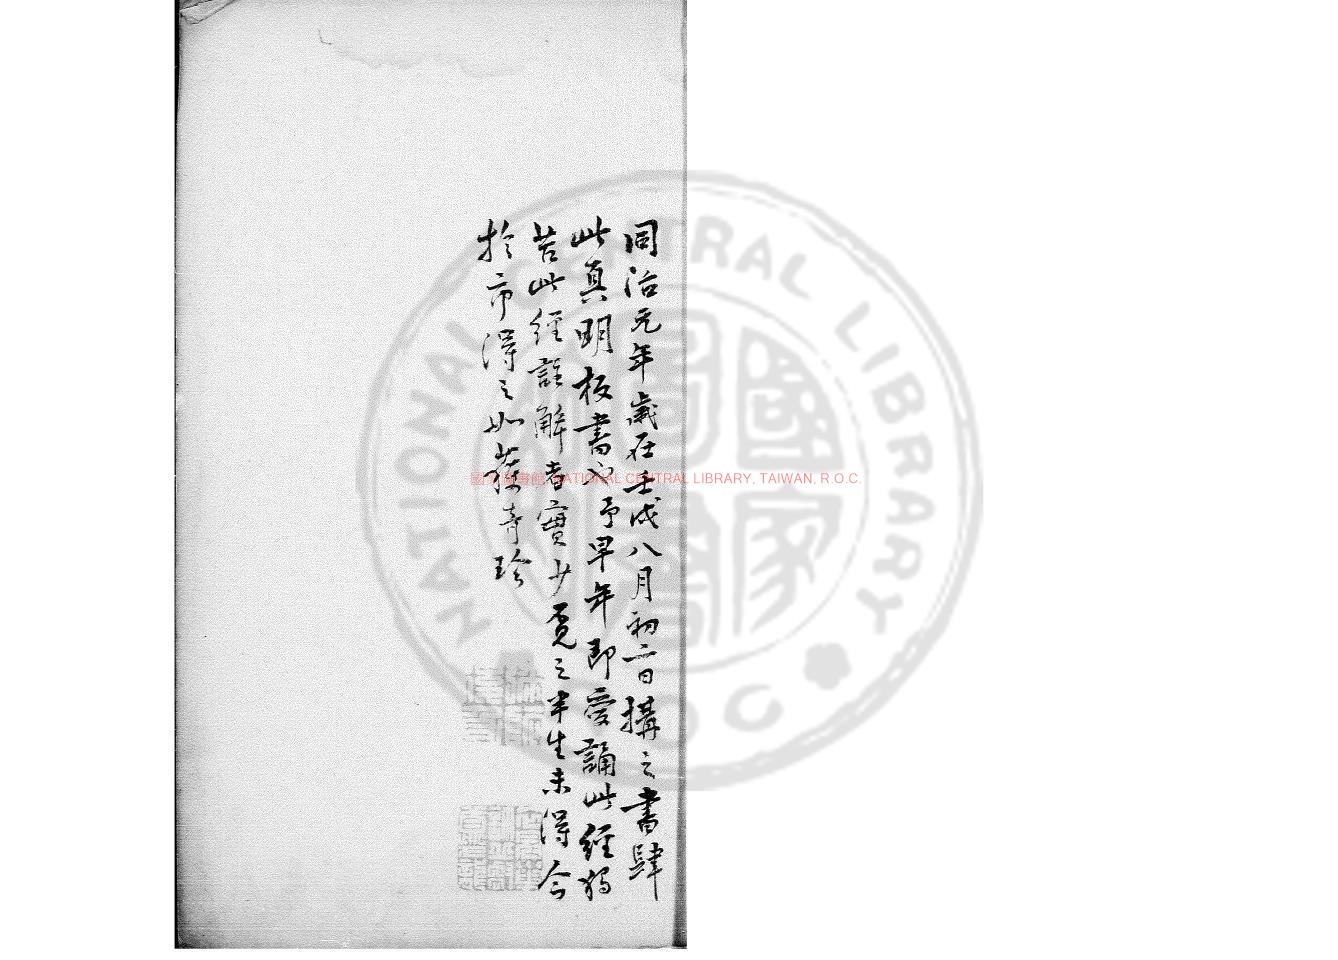 同治元年歲在壬戌八月初二日搆之書肆
此真明板書也予早年即愛誦此經獨
苦此經註解者實少覓之半生未得今
於市得之如獲奇珍
國家圖書館 NATIONAL CENTRAL LIBRARY, TAIWAN, R.O.C.
NATIONAL CENTRAL LIBRARY
R.O.C
國家圖書館